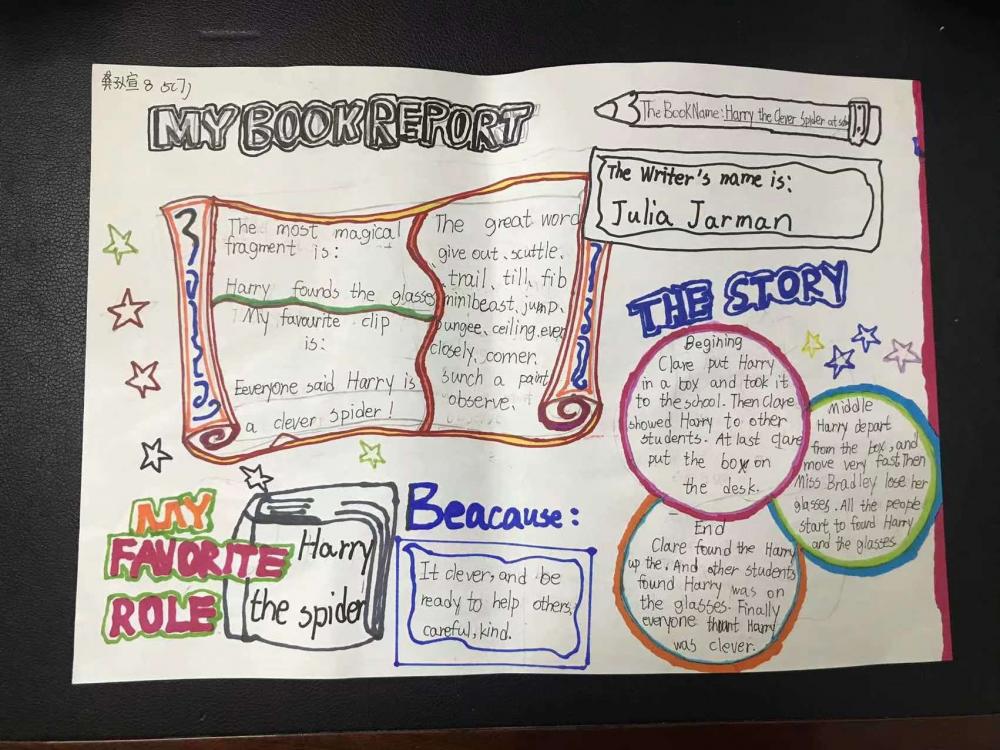 龚孙宣 8 5(7)
MY BOOK REPORT
The Book Name: Harry the Clever Spider at
The Writer's name is:
Julia Jarman
The most magical
fragment is:
Harry founds the glasses
My favourite clip
is:
Eeveryone said Harry is
a clever spider!
The great word
give out、scuttle、
trail、till、fib
minibeast、jump、
bungee、ceiling、even
closely、corner、
bunch a paint
observe、
THE STORY
Begining
Clare put Harry
in a box and took it
to the school. Then Clare
showed Harry to other
students. At last Clare
put the box on
the desk.
Middle
Harry depart
from the box, and
move very fast Then
Miss Bradley lose her
glasses. All the people
start to found Harry
and the glasses.
End
Clare found the Harry
up the. And other students
found Harry was on
the glasses. Finally
everyone Harry
was clever.
MY
FAVORITE
ROLE
Harry
the spider
Beacause:
It clever, and be
ready to help others,
careful, kind.